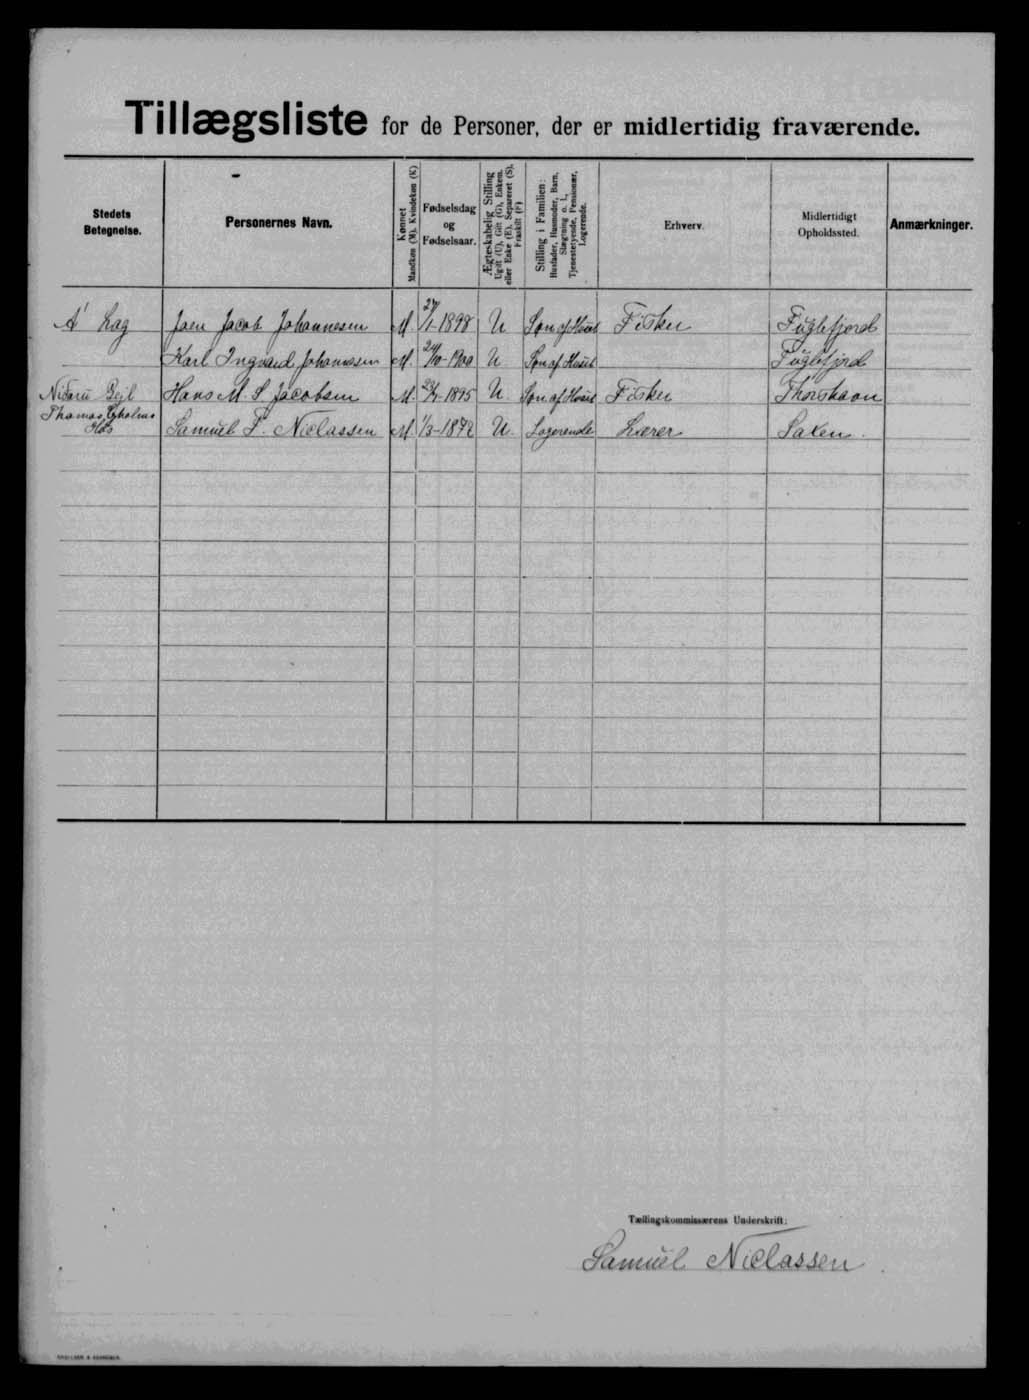 Tillægsliste for de Personer, der er midlertidig fraværende.
Stedets Betegnelse.
Personernes Navn.
Kønnet
Mandkøn (M). Kvindekøn (K)
Fødselsdag
og
Fødselsaar.
Ægteskabelig Stilling
Ugift (U), Gift (G), Enkem.
eller Enke (E), Separeret (S),
Fraskilt (F)
Stilling i Familien:
Husfader, Husmoder, Barn,
Slægtning o. l.,
Tjenestetyende, Pensionær,
Logerende.
Erhverv.
Midlertidigt
Opholdssted.
Anmærkninger.
A' Lag Joen Jacob Johannesen M. 1898 U Søn af Huset Fisker Fuglefjord
Karl Ingvard Johannesen M. 1900 U. Søn af Huset Fuglefjord
Hans M. S. Jacobsen M. 1895 U. Søn af Huset Fisker Thorshavn
Thomas
Hus Samuel F. Niclassen M 1/3-1872 U. Logerende Lærer Saxen.
Tællingskommissærens Underskrift:
Samuel Niclassen